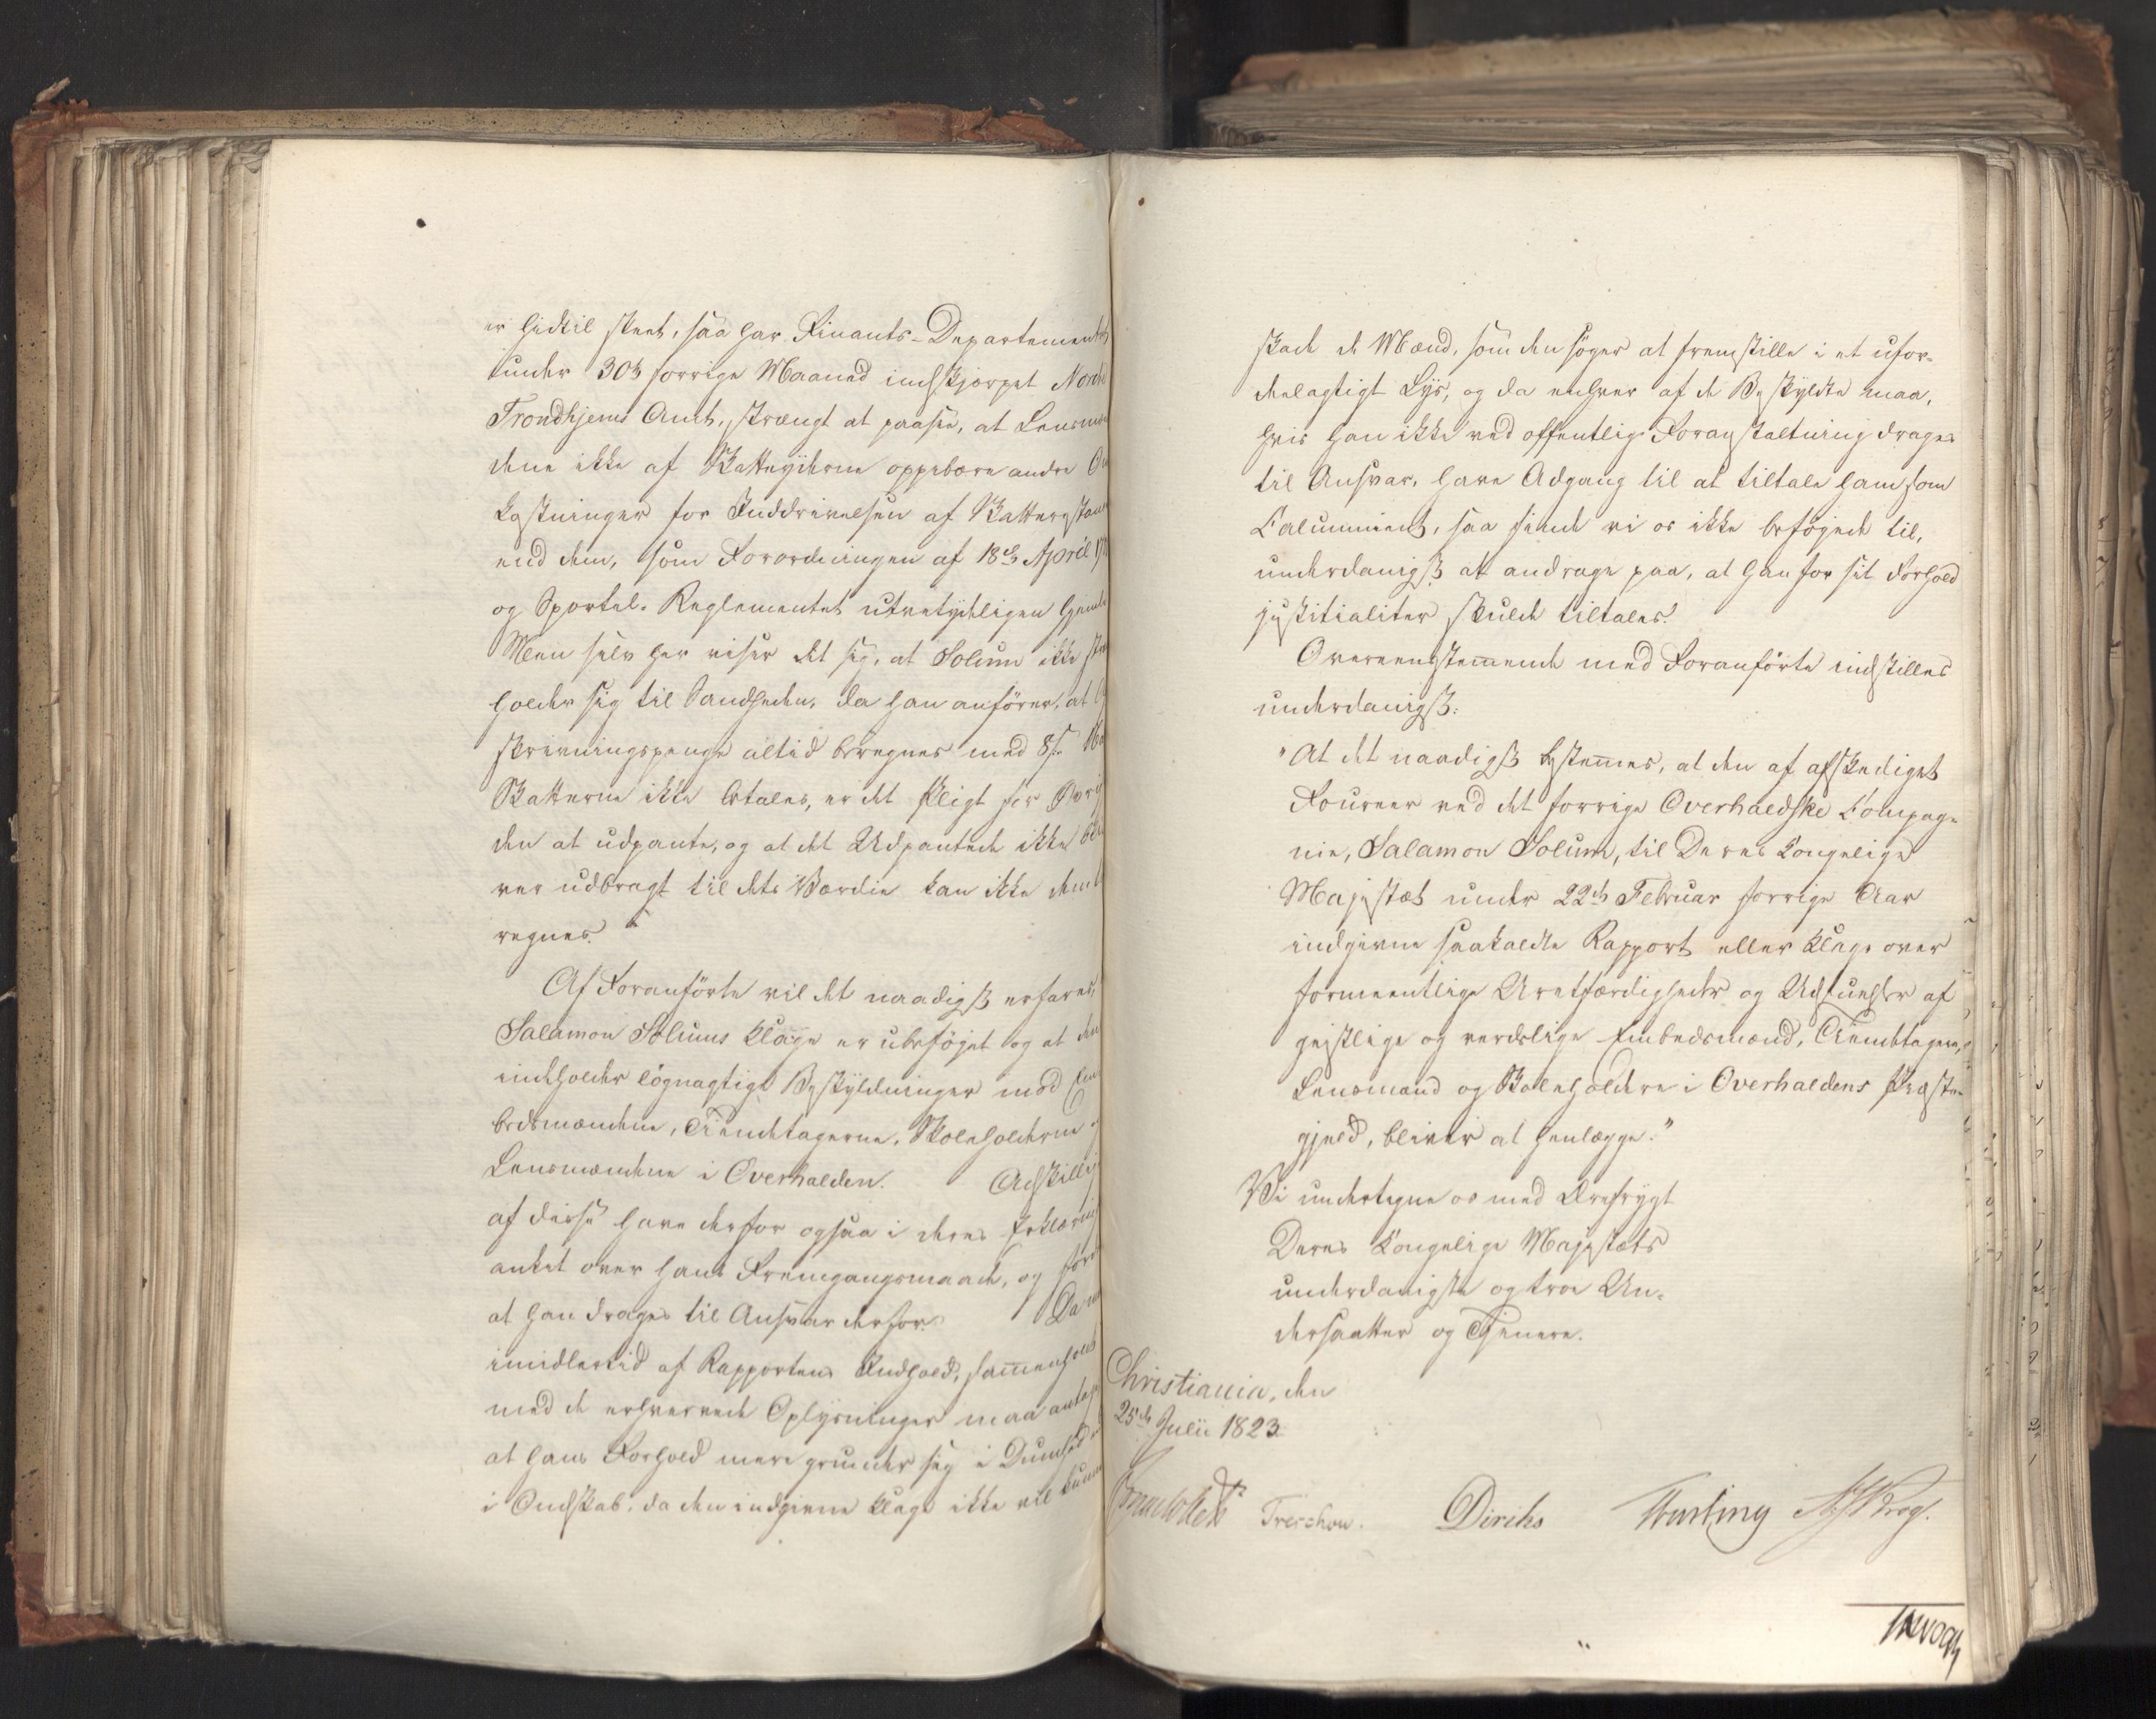 er hidtil skeet, saa har Finants-Departementet
under 30te forrige Maaned indskjærpet Nordre
Trondhjems Amt, strængt at paasee, at Lensmæn
dene ikke af Skatteyderne oppebære andre Om
kostninger for Inddrivelsen af Skatterestancer
end dem, som Forordningen af 18de April 17
og Sportel-Reglementet utvetydeligen hjemle
Men selv her viser det sig, at Solum ikke
holder sig til Sandheden, da han anfører, at
skrivningspenge altid beregnes med 8 s.
Skatterne ikke betales, er det Pligt for Øvrig
den at udpante, og at det Udpantede ikke bli
ver udbragt til dets Værdie kan ikke dem
regnes.
Af Foranførte vil det naadigst erfares,
Salamon Solums Klage er ubeføjet og at den
indeholder løgnagtige Beskyldninger mod Em
bedsmændene, Tiendetagerne, Skoleholderne
Lensmændene i Overhalden. Adskillige
af disse have derfor ogsaa i deres Erklæring
anket over hans Fremgangsmaade, og
at han drages til Ansvar derfor. Da
imidlertid af Rapportens Indhold, sammenholdt
med de erhvervede Oplysninger maa antages
at hans Forhold mere grunder sig i Dumhed
i Ondskab, da den indgivne Klage ikke vil kunne
skade de Mænd, som den søger at fremstille i et ufor-
deelagtigt Lys, og da enhver af de Beskyldte maa,
hvis han ikke ved offentlig Foranstaltning drages
til Ansvar, have Adgang til at tiltale ham som
Calumniant, saa finde vi os ikke beføjede til,
underdanigst at andrage paa, at han for sit Forhold
justitialiter skulde tiltales.
Overeensstemmende med Foranførte indstilles
underdanigst:
"At det naadigst bestemmes, at den af afskediget
Foureer ved det forrige Overhaldske Compag-
nie, Salamon Solum, til Deres Kongelige
Majestæt under 22de Februar forrige Aar
indgivne saakaldte Rapport eller Klage over
formeentlige Uretfærdigheder og Udsuelser af
geistlige og verdslige Embedsmænd, Tiendetagere,
Lensmænd og Skoleholdere i Overhaldens Præste-
gjeld, bliver at henlægge."
Vi undertegne os med Ærefrygt
Deres Kongelige Majestæts
underdanigste og troe Un-
dersaatter og Tjenere.
Christiania, den
25de Julii 1823
Treschow. Diriks Krog.